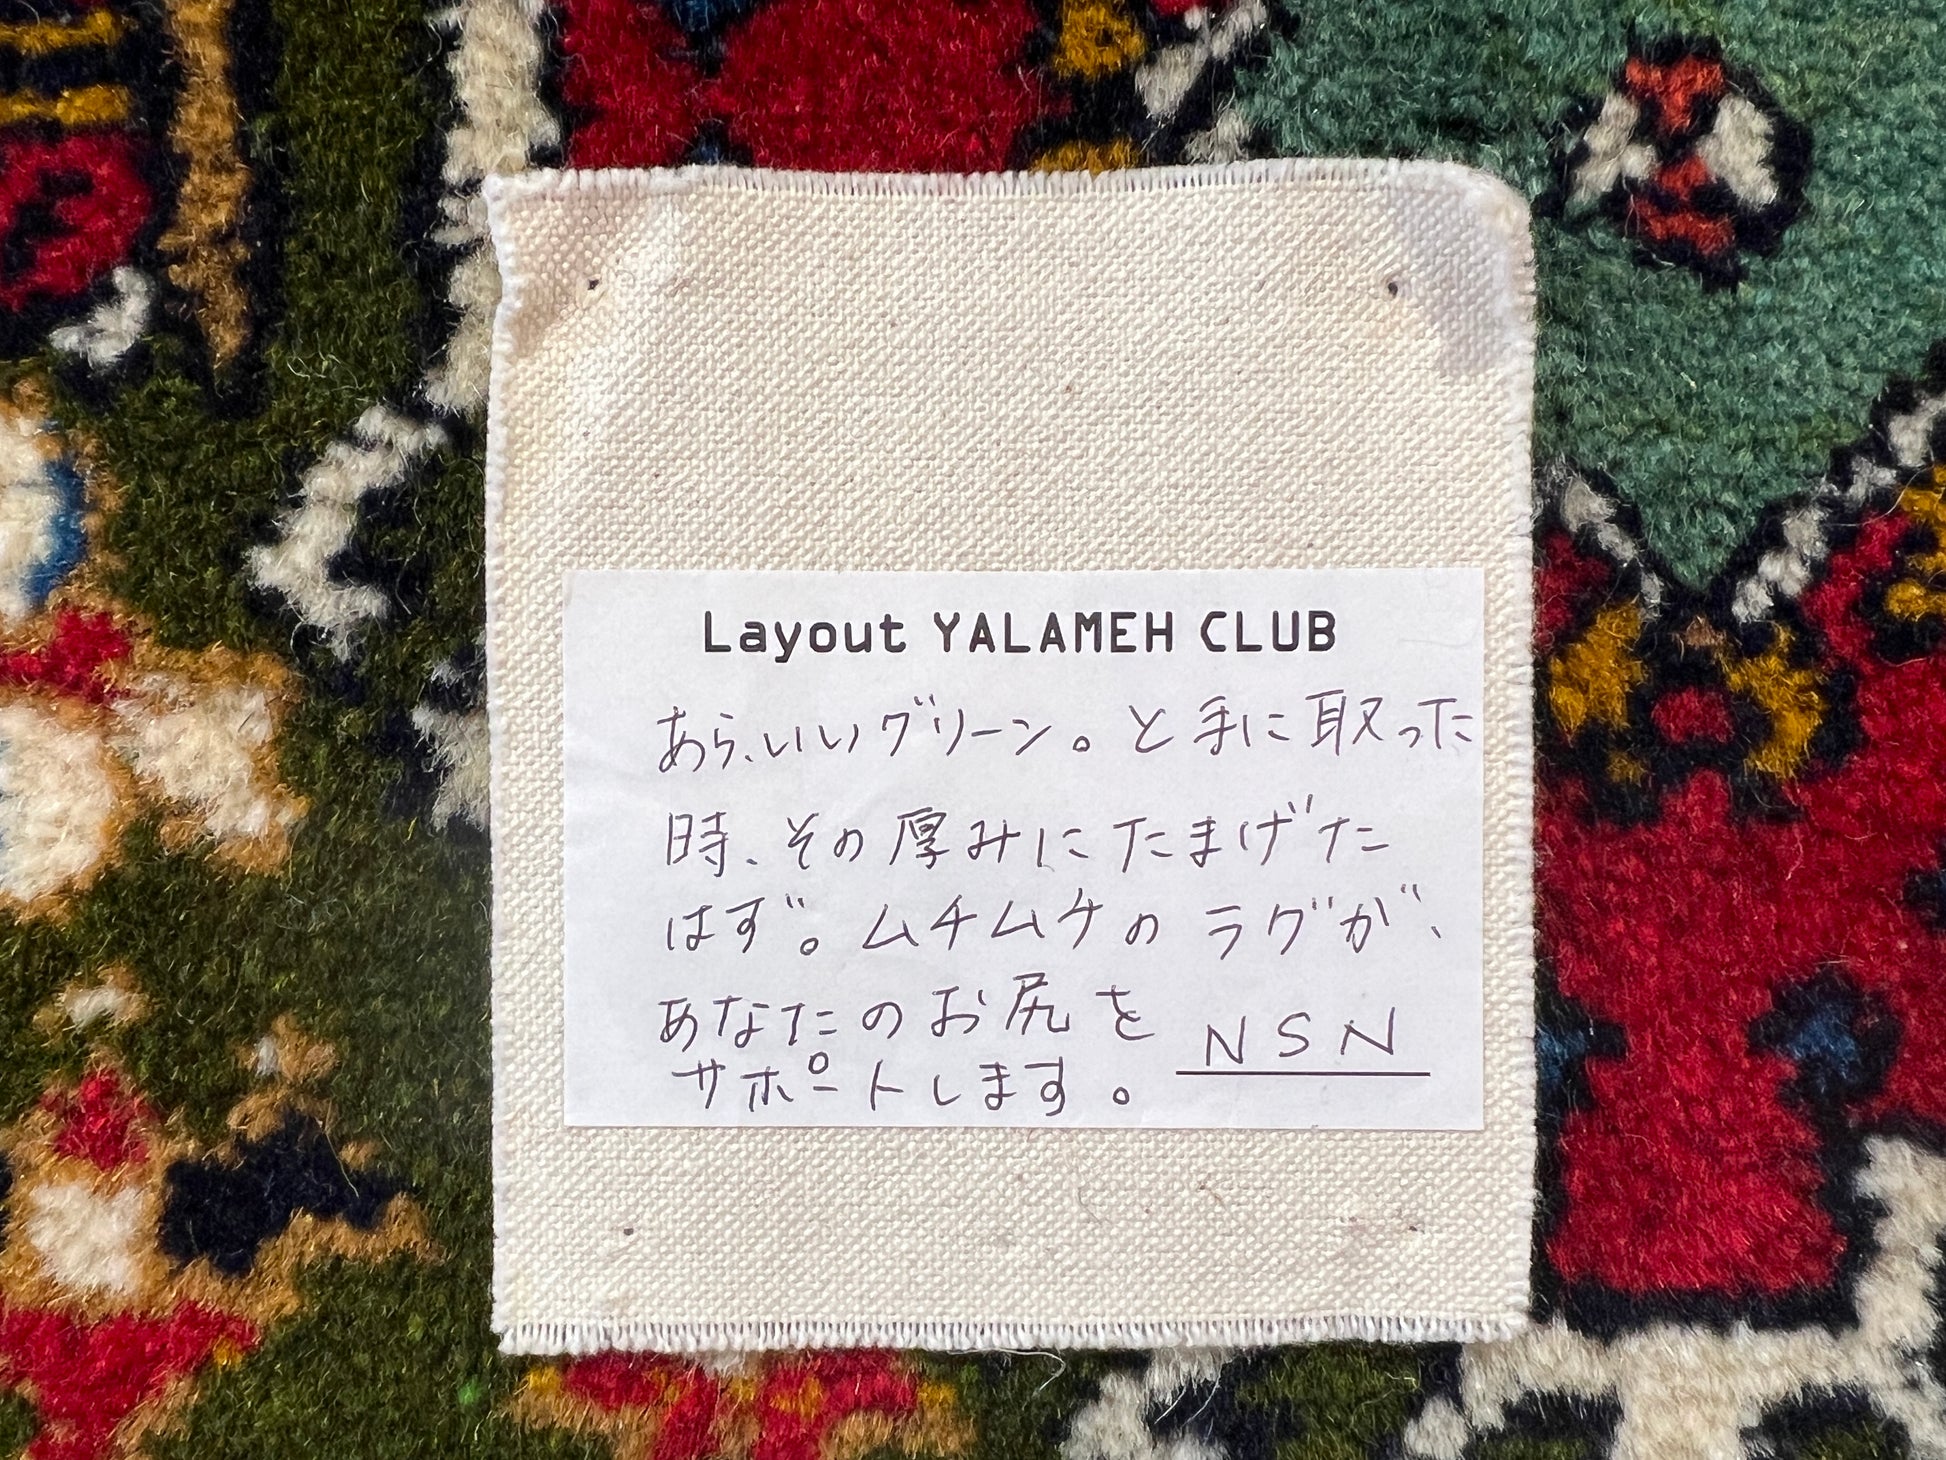 Layout YALAMEH CLUB
あら、いいグリーン。と手に取った
時、その厚みにたまげた
はず。ムチムチのラグが、
あなたのお尻を
サポートします。
NSN